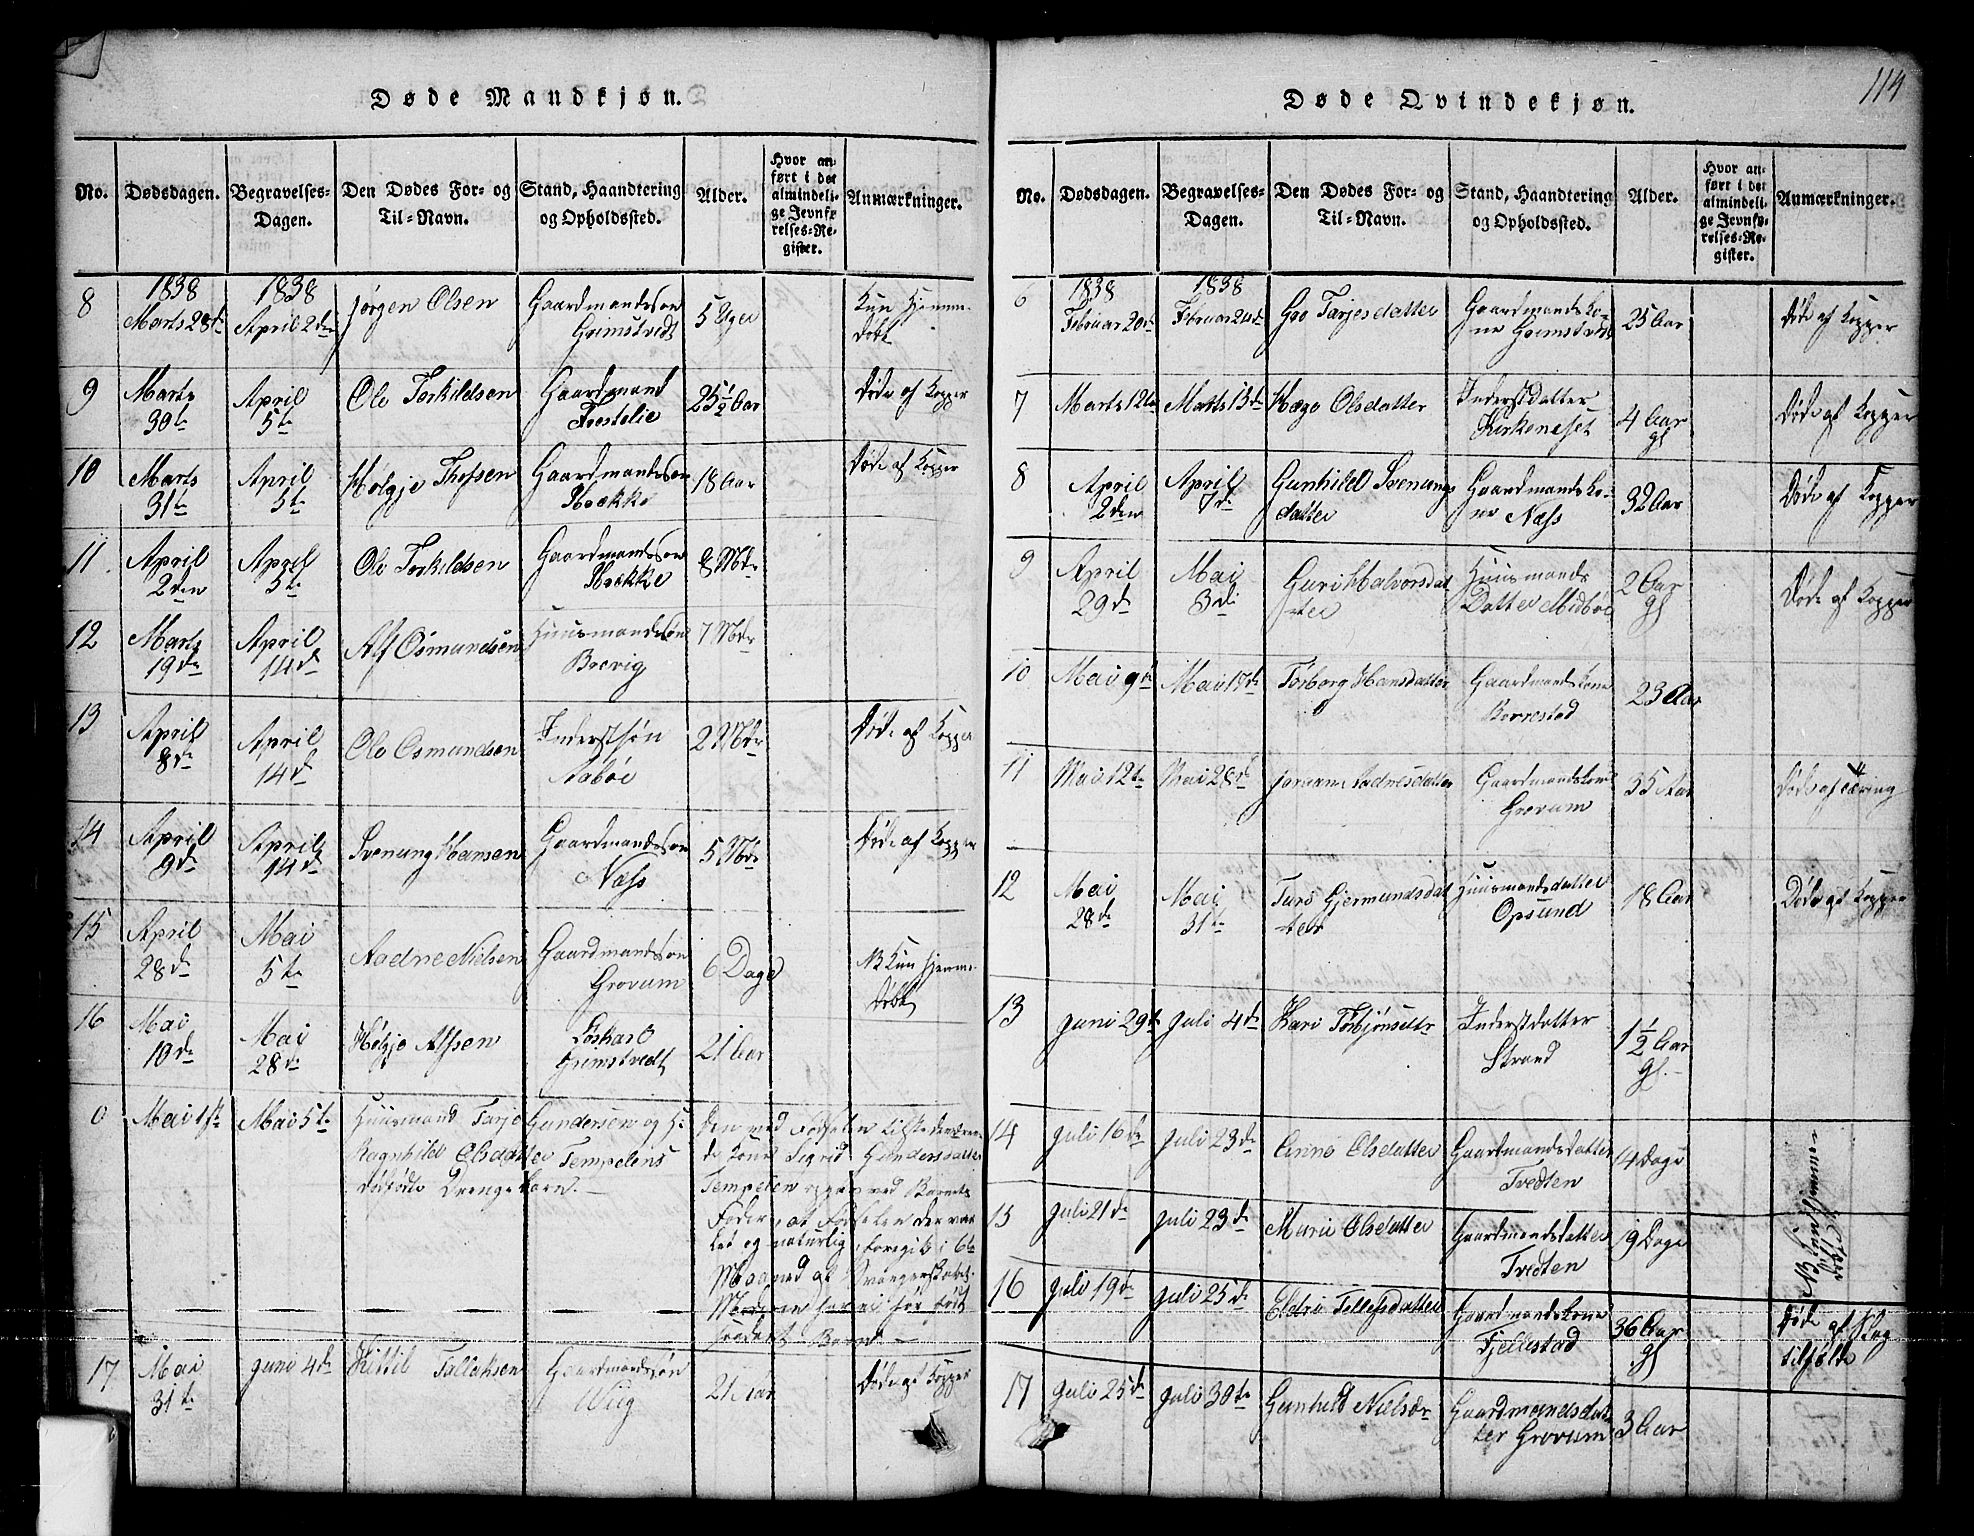 Døde Mandkjøn.
No. Dødsdagen. Begravelses-Dagen. Den Dødes For- og Til-Navn. Stand, Haandtering og Opholdssted. Alder. Hvor anført i det almindelige Jevnførelses-Register. Anmærkninger.
8 1838 Marts 28de 1838 April 2den Jørgen Olsen Gaardmandssøn Grimstvedt 5 Uger Kun Hjemmedøbt
9 Marts 30te April 5te Ole Torkildsen Gaardmand Trostelie 25½ Aar Døde af Kopper
10 Marts 31te April 5te Hølgje Thofsen Gaardmandssøn Høkke 18 Aar Døde af Kopper
11 April 2den April 5te Ole Torkildsen Gaardmandssøn Høkke 8 Mdr
12 Marts 19de April 14de Alf Osmundsen Huusmandssøn Brevig 7 Mdr
13 April 8de April 14de Ole Osmundsen Inderstsøn Nabøe 2 Mdr Døde af Kopper
14 April 9de April 14de Svenung Hansen Gaardmandssøn Næss 5 Mdr Døde af Kopper
15 April 28de Mai 5te Aadne Nielsen Gaardmandssøn Grovum 6 Dage NB Kun hjemmedøbt
16 Mai 10de Mai 28de Hølgje Alfsen Løskarl Grimstvedt 21 Aar
0 Mai 1ste Mai 5te Huusmand Tarje Gundersen og H:
Ragnhild Olsdatter Tempelens
dødfødte Drengebarn.
Den ved Fødselen tilstedeværende
Kone Sigrid Gundersdatter
Tempelen opgav med Barnets
Fader, at Fødselen der var
let og naturlig, foregik i 6te
Maaned af Svangerskabet.
Moderen har ei før født
Barn
17 Mai 31te Juni 4de Kittil Tallaksen Gaardmandssøn Wiig 21 Aar Døde af Kopper
114
Døde Qvindekjøn.
No. Dødsdagen. Begravelses-Dagen. Den Dødes For- og Til-Navn. Stand, Haandtering og Opholdssted. Alder. Hvor anført i det almindelige Jevnførelses-Register. Anmærkninger.
6 1838 Februar 20de 1838 Februar 24de Gro Tarjesdatter Gaardmandskone Grimstvedt 25 Aar Døde af Kopper
7 Marts 12te Marts 13de Hæge Olsdatter Inderstdatter Kirkeneset 4 Aar gl Døde af Kopper
8 April 2den April 7de Gunhild Svenungsdatter Gaardmandskone Næss 32 Aar Døde af Kopper
9 April 29de Mai 3die Guri Halvorsdatter Huusmands Datter Midbøe 2 Aar gl Døde af Kopper
10 Mai 9de Mai 17de Torborg Hansdatter Gaardmandskone Borrestad 23 Aar
11 Mai 12te Mai 28de Joraan Aadnesdatter Gaardmandskone Grovum 35 Aar Døde af Tæring
12 Mai 28de Mai 31te Turi Gjermundsdatter Huusmandsdatter Opsund 18 Aar Døde af Kopper
13 Juni 29de Juli 4de Kari Torbjønsdtr Inderstdatter Strand 1½ Aar gl.
14 Juli 16de Juli 23de Anne Olsdatter Gaardmandsdatter Tvedten 4 Dage
15 Juli 21de Juli 23de Marie Olsdatter Gaardmandsdatter Tvedten 9 Dage NB Kun hjemmedøbte
16 Juli 19de Juli 25de Eldri Tellefsdatter Gaardmandskone Fjellestad 36 Aar gl Døde af Slagtilfælde
17 Juli 25de Juli 30te Gunhild Nielsdr Gaardmandsdatter Grovum 3 Aar